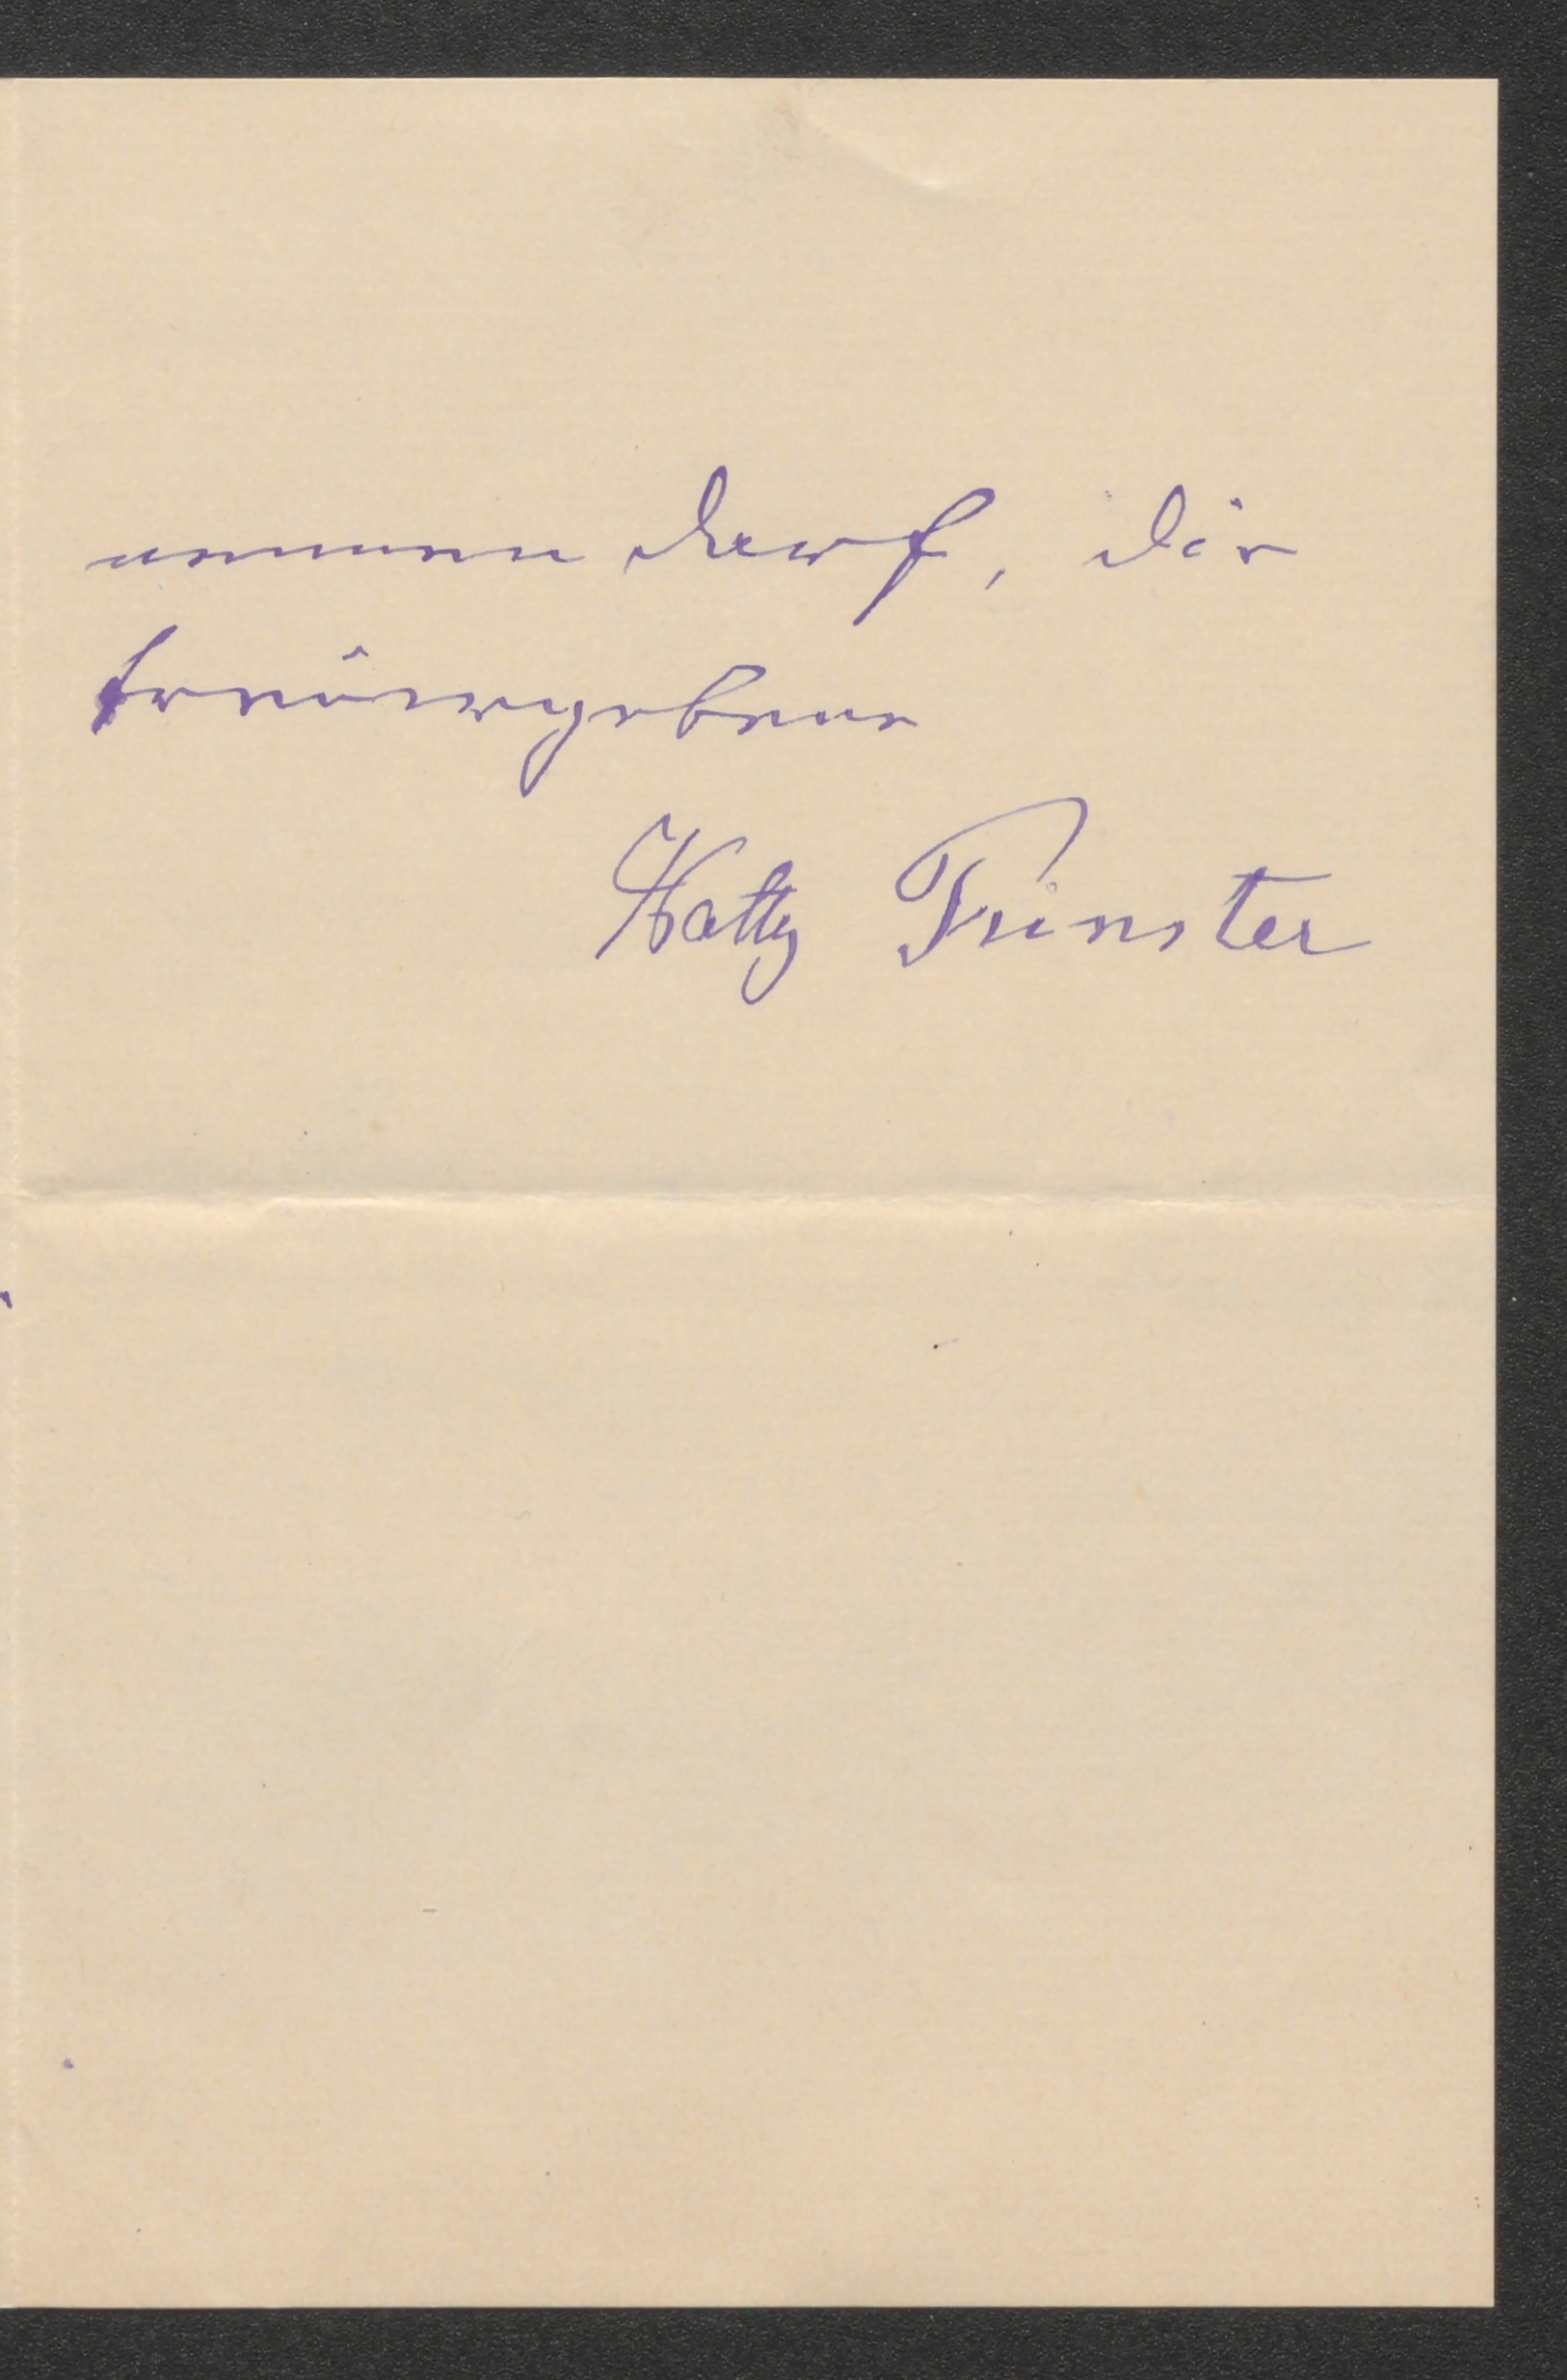 nennen darf, die
treuergebene
Katty Fünster